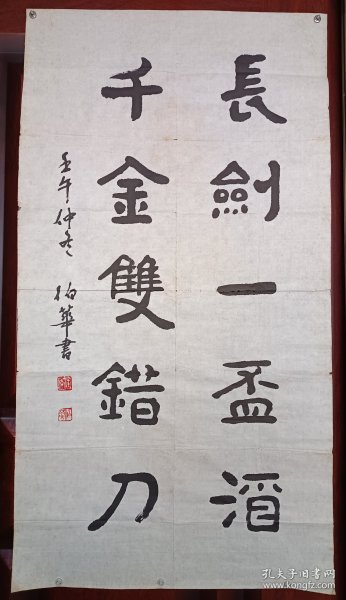 長劍一盃酒
千金雙錯刀
壬午仲冬 柏華書
孔夫子旧书网
www.kongfz.com